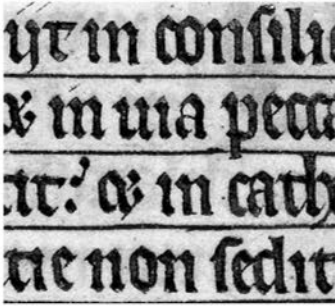 ijt in conſili
⁊ in uia pecca
tit: ⁊ in cath
tie non ſedit